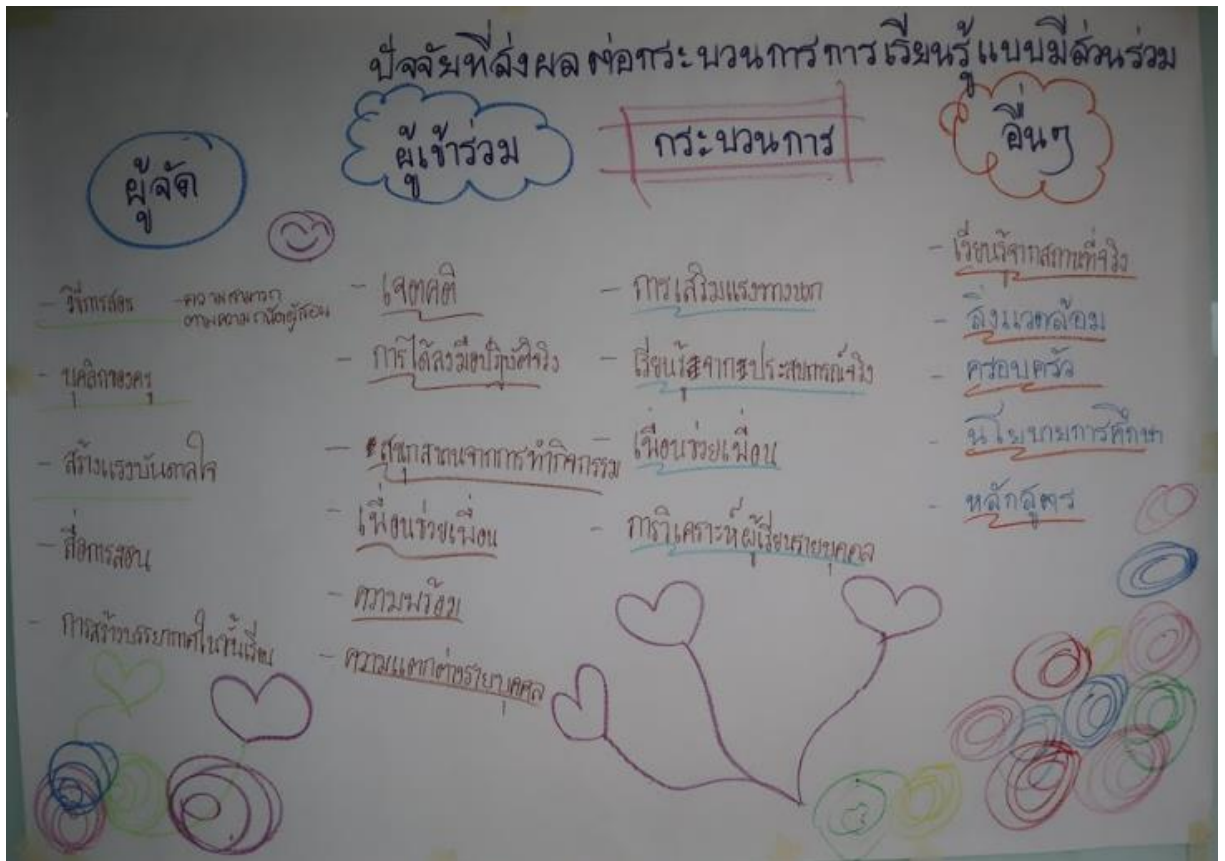 ปัจจัยที่ส่งผลต่อกระบวนการการเรียนรู้แบบมีส่วนร่วม
ผู้จัด
- วิธีการสอน
- ความสามารถ
ตามความถนัดผู้สอน
- บุคลิกของครู
- สร้างแรงบันดาลใจ
- สื่อการสอน
- การสร้างบรรยากาศในชั้นเรียน
ผู้เข้าร่วม
- เจตคติ
- การได้ลงมือปฏิบัติจริง
- สนุกสนานจากการทำกิจกรรม
- เพื่อนช่วยเพื่อน
- ความพร้อม
- ความแตกต่างรายบุคคล
กระบวนการ
- การเสริมแรงทางบวก
- เรียนรู้จากประสบการณ์จริง
- เพื่อนช่วยเพื่อน
- การวิเคราะห์ผู้เรียนรายบุคคล
อื่นๆ
- เรียนรู้จากสถานที่จริง
- สิ่งแวดล้อม
- ครอบครัว
- นโยบายการศึกษา
- หลักสูตร